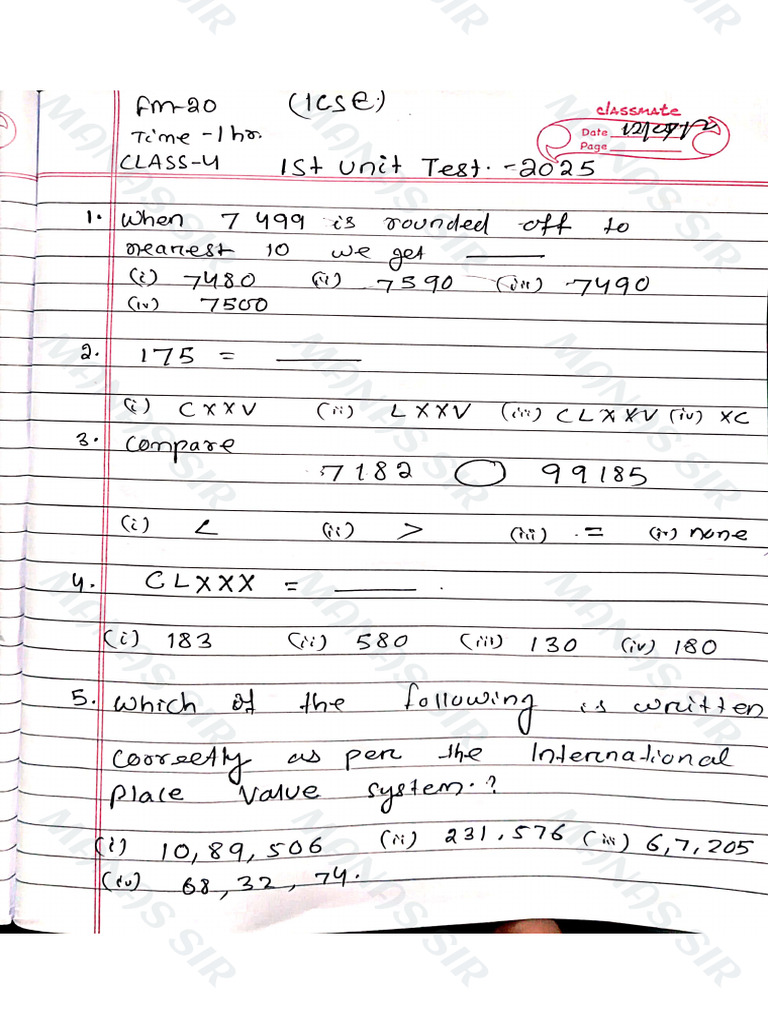 FM-20 (ICSE)
classmate
Time -1 hr.
Date
Page
CLASS-4 1st Unit Test. -2025
1. When 7499 is rounded off to
nearest 10 we get ______
(i) 7480 (ii) 7590 (iii) 7490
(iv) 7500
2. 175 = ______
(i) CXXV (ii) LXXV (iii) CLXXV (iv) XC
3. Compare
7182 ◯ 99185
(i) < (ii) > (iii) = (iv) none
4. CLXXX = ______.
(i) 183 (ii) 580 (iii) 130 (iv) 180
5. Which of the following is written
correctly as per the International
Place Value system.?
(i) 10,89,506 (ii) 231,576 (iii) 6,7,205
(iv) 68,32,74.
MANAS SIR